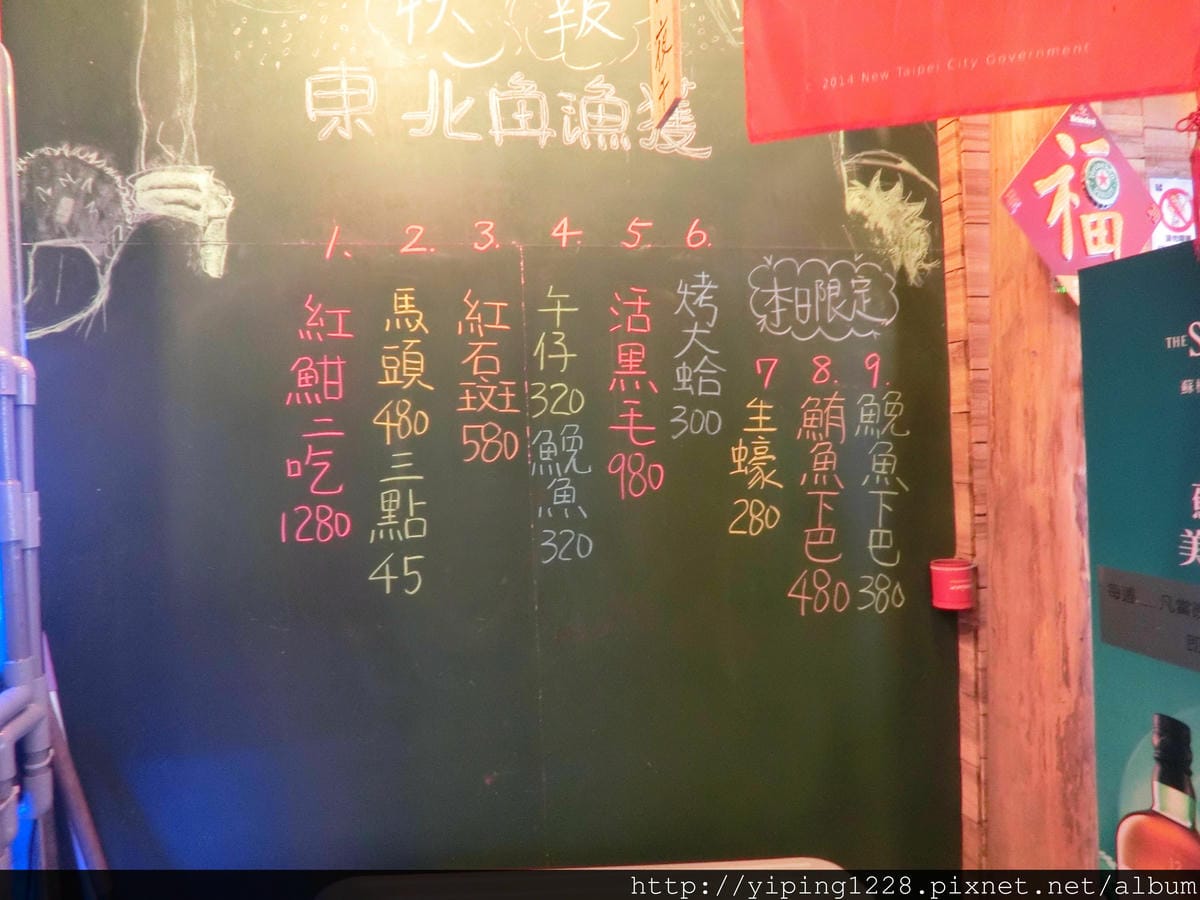 快報
東北角漁獲
1.
紅魽二吃1280
2.
馬頭480三點45
3.
紅石斑580
4.
午仔320鮸魚320
5.
活黑毛980
6.
烤大蛤300
本日限定
7
生蠔280
8.
鮪魚下巴480
9.
鮸魚下巴380
c 2014 New Taipei City Government
福
THE
http://yiping1228.pixnet.net/album